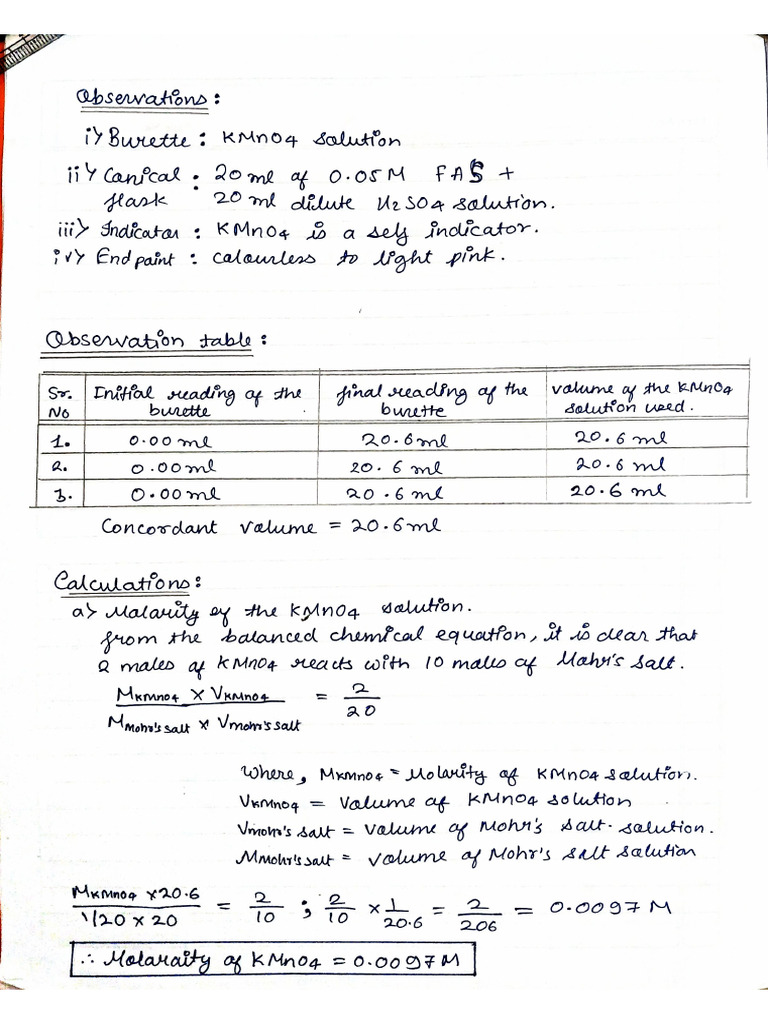 Observations :
i> Burette : KMnO4 solution
ii> Conical : 20 ml of 0.05M FAS +
flask 20 ml dilute H2SO4 solution.
iii> Indicator : KMnO4 is a self indicator.
iv> End point : colourless to light pink.
Observation table :
Sr. No | Initial reading of the burette | final reading of the burette | volume of the KMnO4 solution used.
1. | 0.00 ml | 20.6 ml | 20.6 ml
2. | 0.00 ml | 20.6 ml | 20.6 ml
3. | 0.00 ml | 20.6 ml | 20.6 ml
Concordant volume = 20.6 ml
Calculations :
a> Molarity of the KMnO4 solution.
from the balanced chemical equation, it is clear that
2 moles of KMnO4 reacts with 10 moles of Mohr's salt.
MKMnO4 x VKMnO4 / MMohr's salt x Vmohr's salt = 2/20
Where, MKMnO4 = Molarity of KMnO4 solution.
VKMnO4 = Volume of KMnO4 solution
Vmohr's salt = volume of Mohr's salt. solution.
MMohr's salt = volume of Mohr's salt solution
MKMnO4 x 20.6 / 1/20 x 20 = 2/10 ; 2/10 x 1/20.6 = 2/206 = 0.0097 M
∴ Molaraity of KMnO4 = 0.0097 M